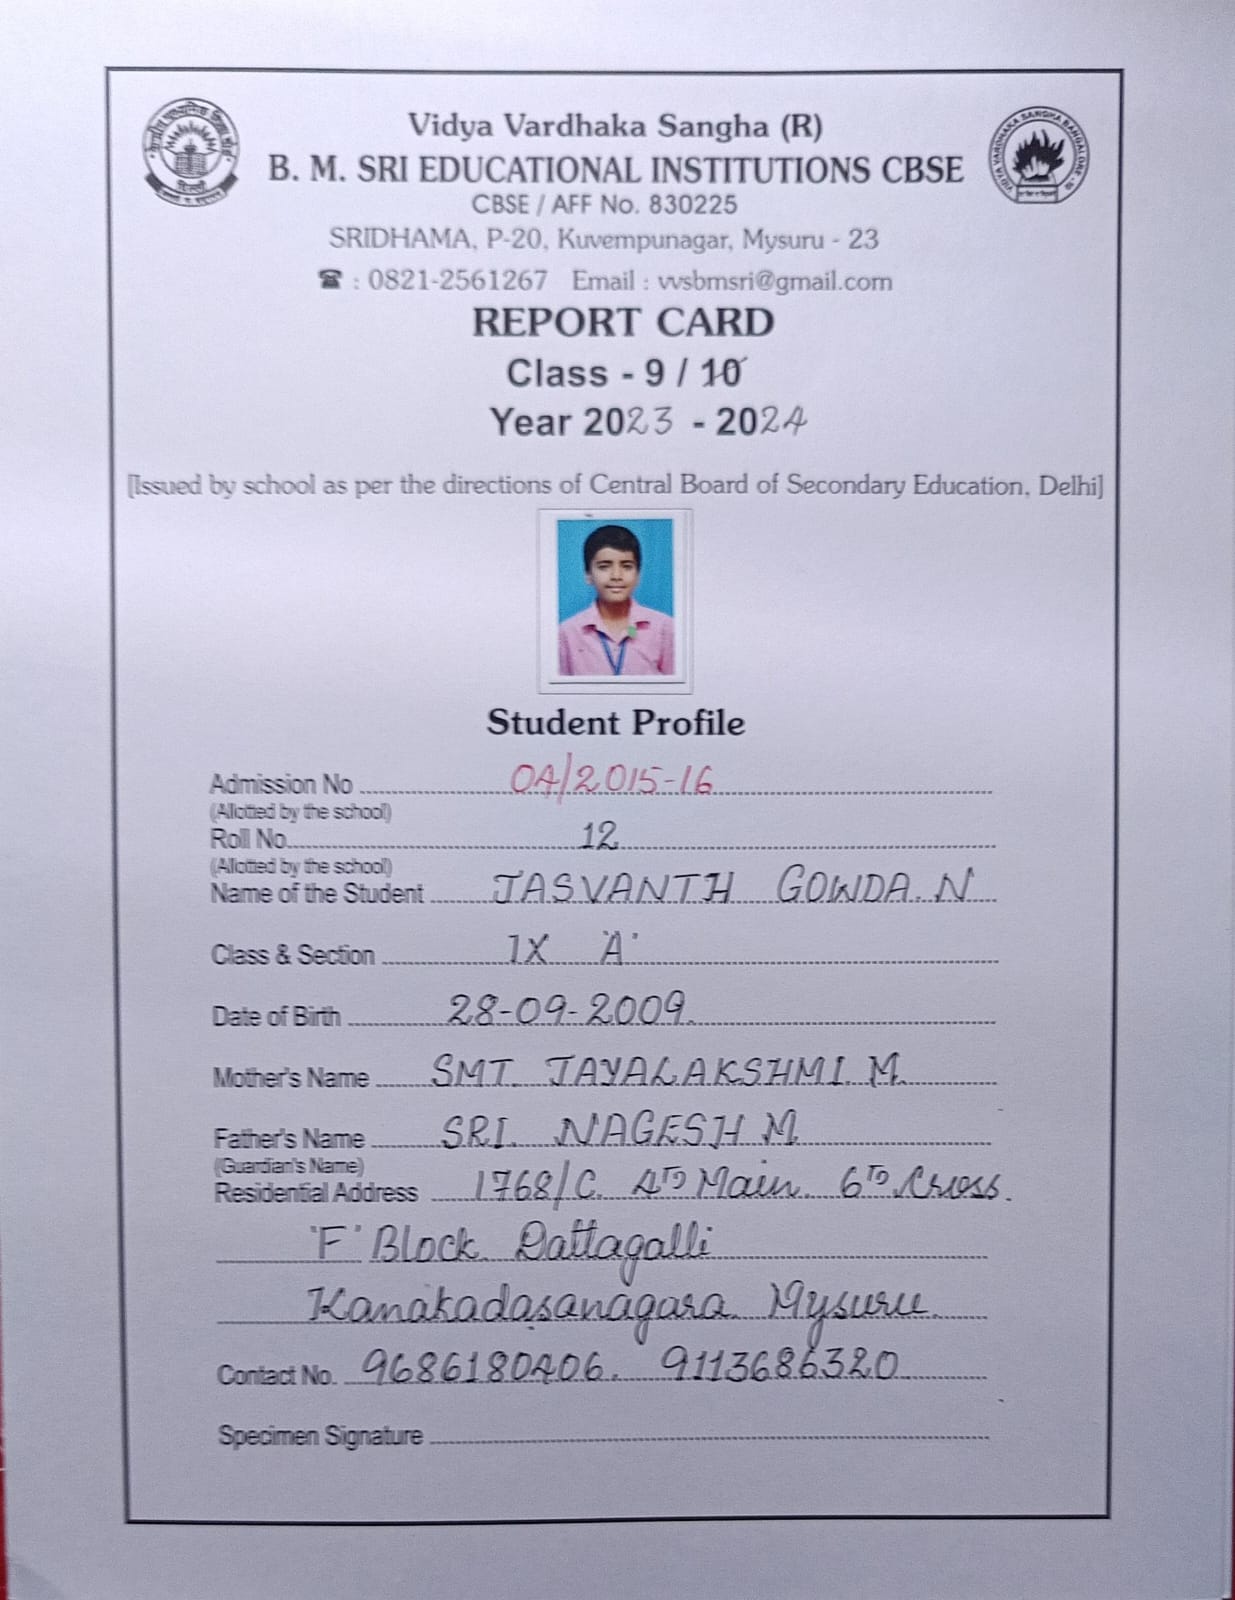 Vidya Vardhaka Sangha (R)
B. M. SRI EDUCATIONAL INSTITUTIONS CBSE
CBSE / AFF No. 830225
SRIDHAMA, P-20, Kuvempunagar, Mysuru - 23
☎ : 0821-2561267 Email : vvsbmsri@gmail.com
REPORT CARD
Class - 9 / 10
Year 2023 - 2024
[Issued by school as per the directions of Central Board of Secondary Education, Delhi]
Student Profile
Admission No 04/2015-16
(Allotted by the school)
Roll No. 12
(Allotted by the school)
Name of the Student JASVANTH GOWDA. N
Class & Section IX 'A'
Date of Birth 28-09-2009
Mother's Name SMT JAYALAKSHMI. M
Father's Name SRI. NAGESH M
(Guardian's Name)
Residential Address 1768/C. 4TD Main. 6TD Cross.
'F' Block Dattagalli
Kanakadasanagara Mysuru.
Contact No. 9686180406. 9113686320
Specimen Signature